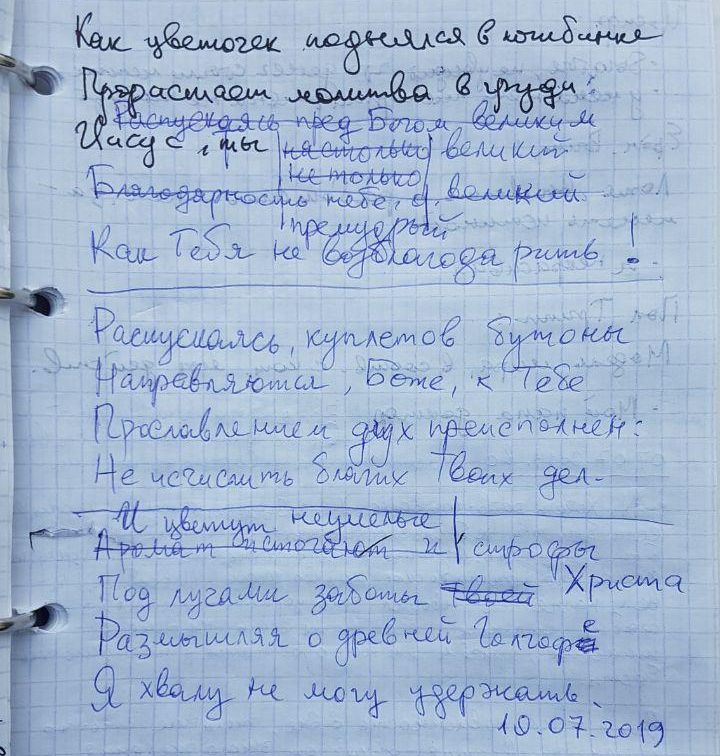 Как цветочек поднялся в ложбинке
Прорастает молитва в груди:
Распускаясь пред Богом великим
Иисус, ты настолько великий
не только
Благодарность тебе, о, великий
премудрый
Как Тебя не возблагодарить!
Распускаясь, куплетов бутоны
Направляются, Боже, к Тебе
Прославлением дух преисполнен:
Не исчислить благих Твоих дел.
И цветут неумелые
Аромат источают и строфы
Под лучами заботы Твоей Христа
Размышляя о древней Голгофе
Я хвалу не могу удержать.
10.07.2019